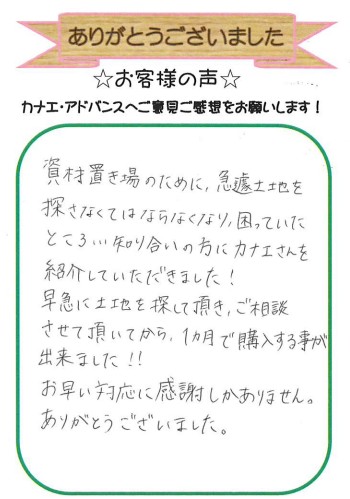 ありがとうございました
☆お客様の声☆
カナエ・アドバンスへご意見ご感想をお願いします！
資材置き場のために、急遽土地を
探さなくてはならなくなり、困っていた
ところ…知り合いの方にカナエさんを
紹介していただきました！
早急に土地を探して頂き、ご相談
させて頂いてから、1カ月で購入する事が
出来ました！！
お早い対応に感謝しかありません。
ありがとうございました。